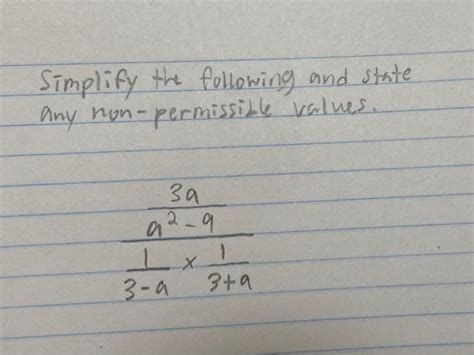 Simplify the following and state
any non-permissible values.
3a
a² - 9
1 × 1
3-a 3+a